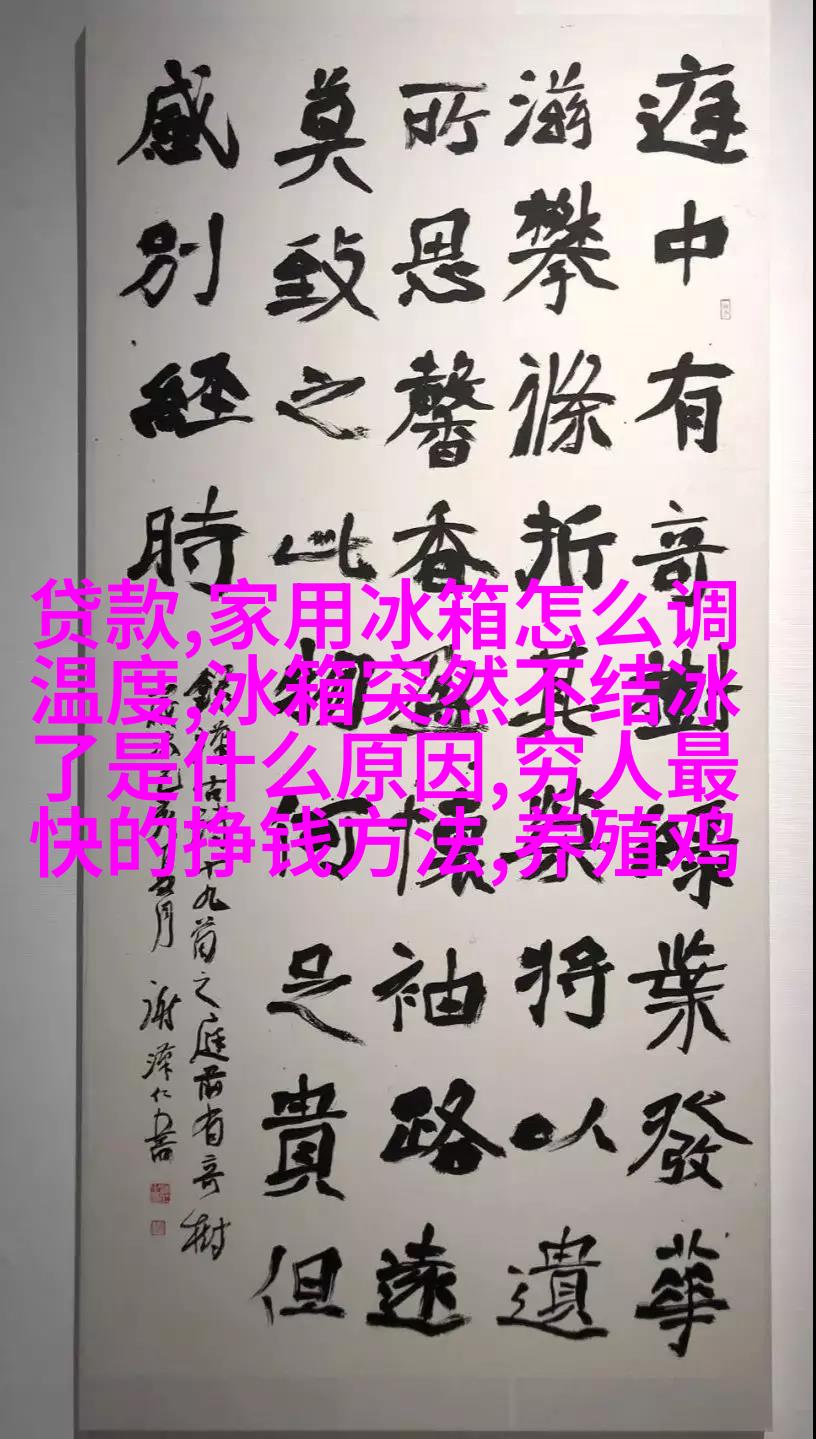 贷款,家用冰箱怎么调
温度,冰箱突然不结冰
了是什么原因,穷人最
快的挣钱方法,养殖鸡
庭中有奇樹綠葉發華
滋攀條折其榮將以遺
所思馨香盈懷袖路遠
莫致之此物何足貴但
感別經時
錄漢古詩十九首之庭前有奇樹
己亥 月 謝澤仁書